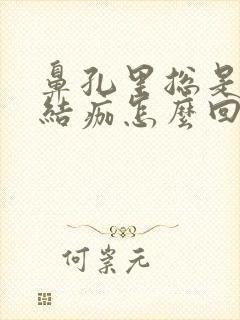 鼻孔里总是
結痂怎麼回
何崇元